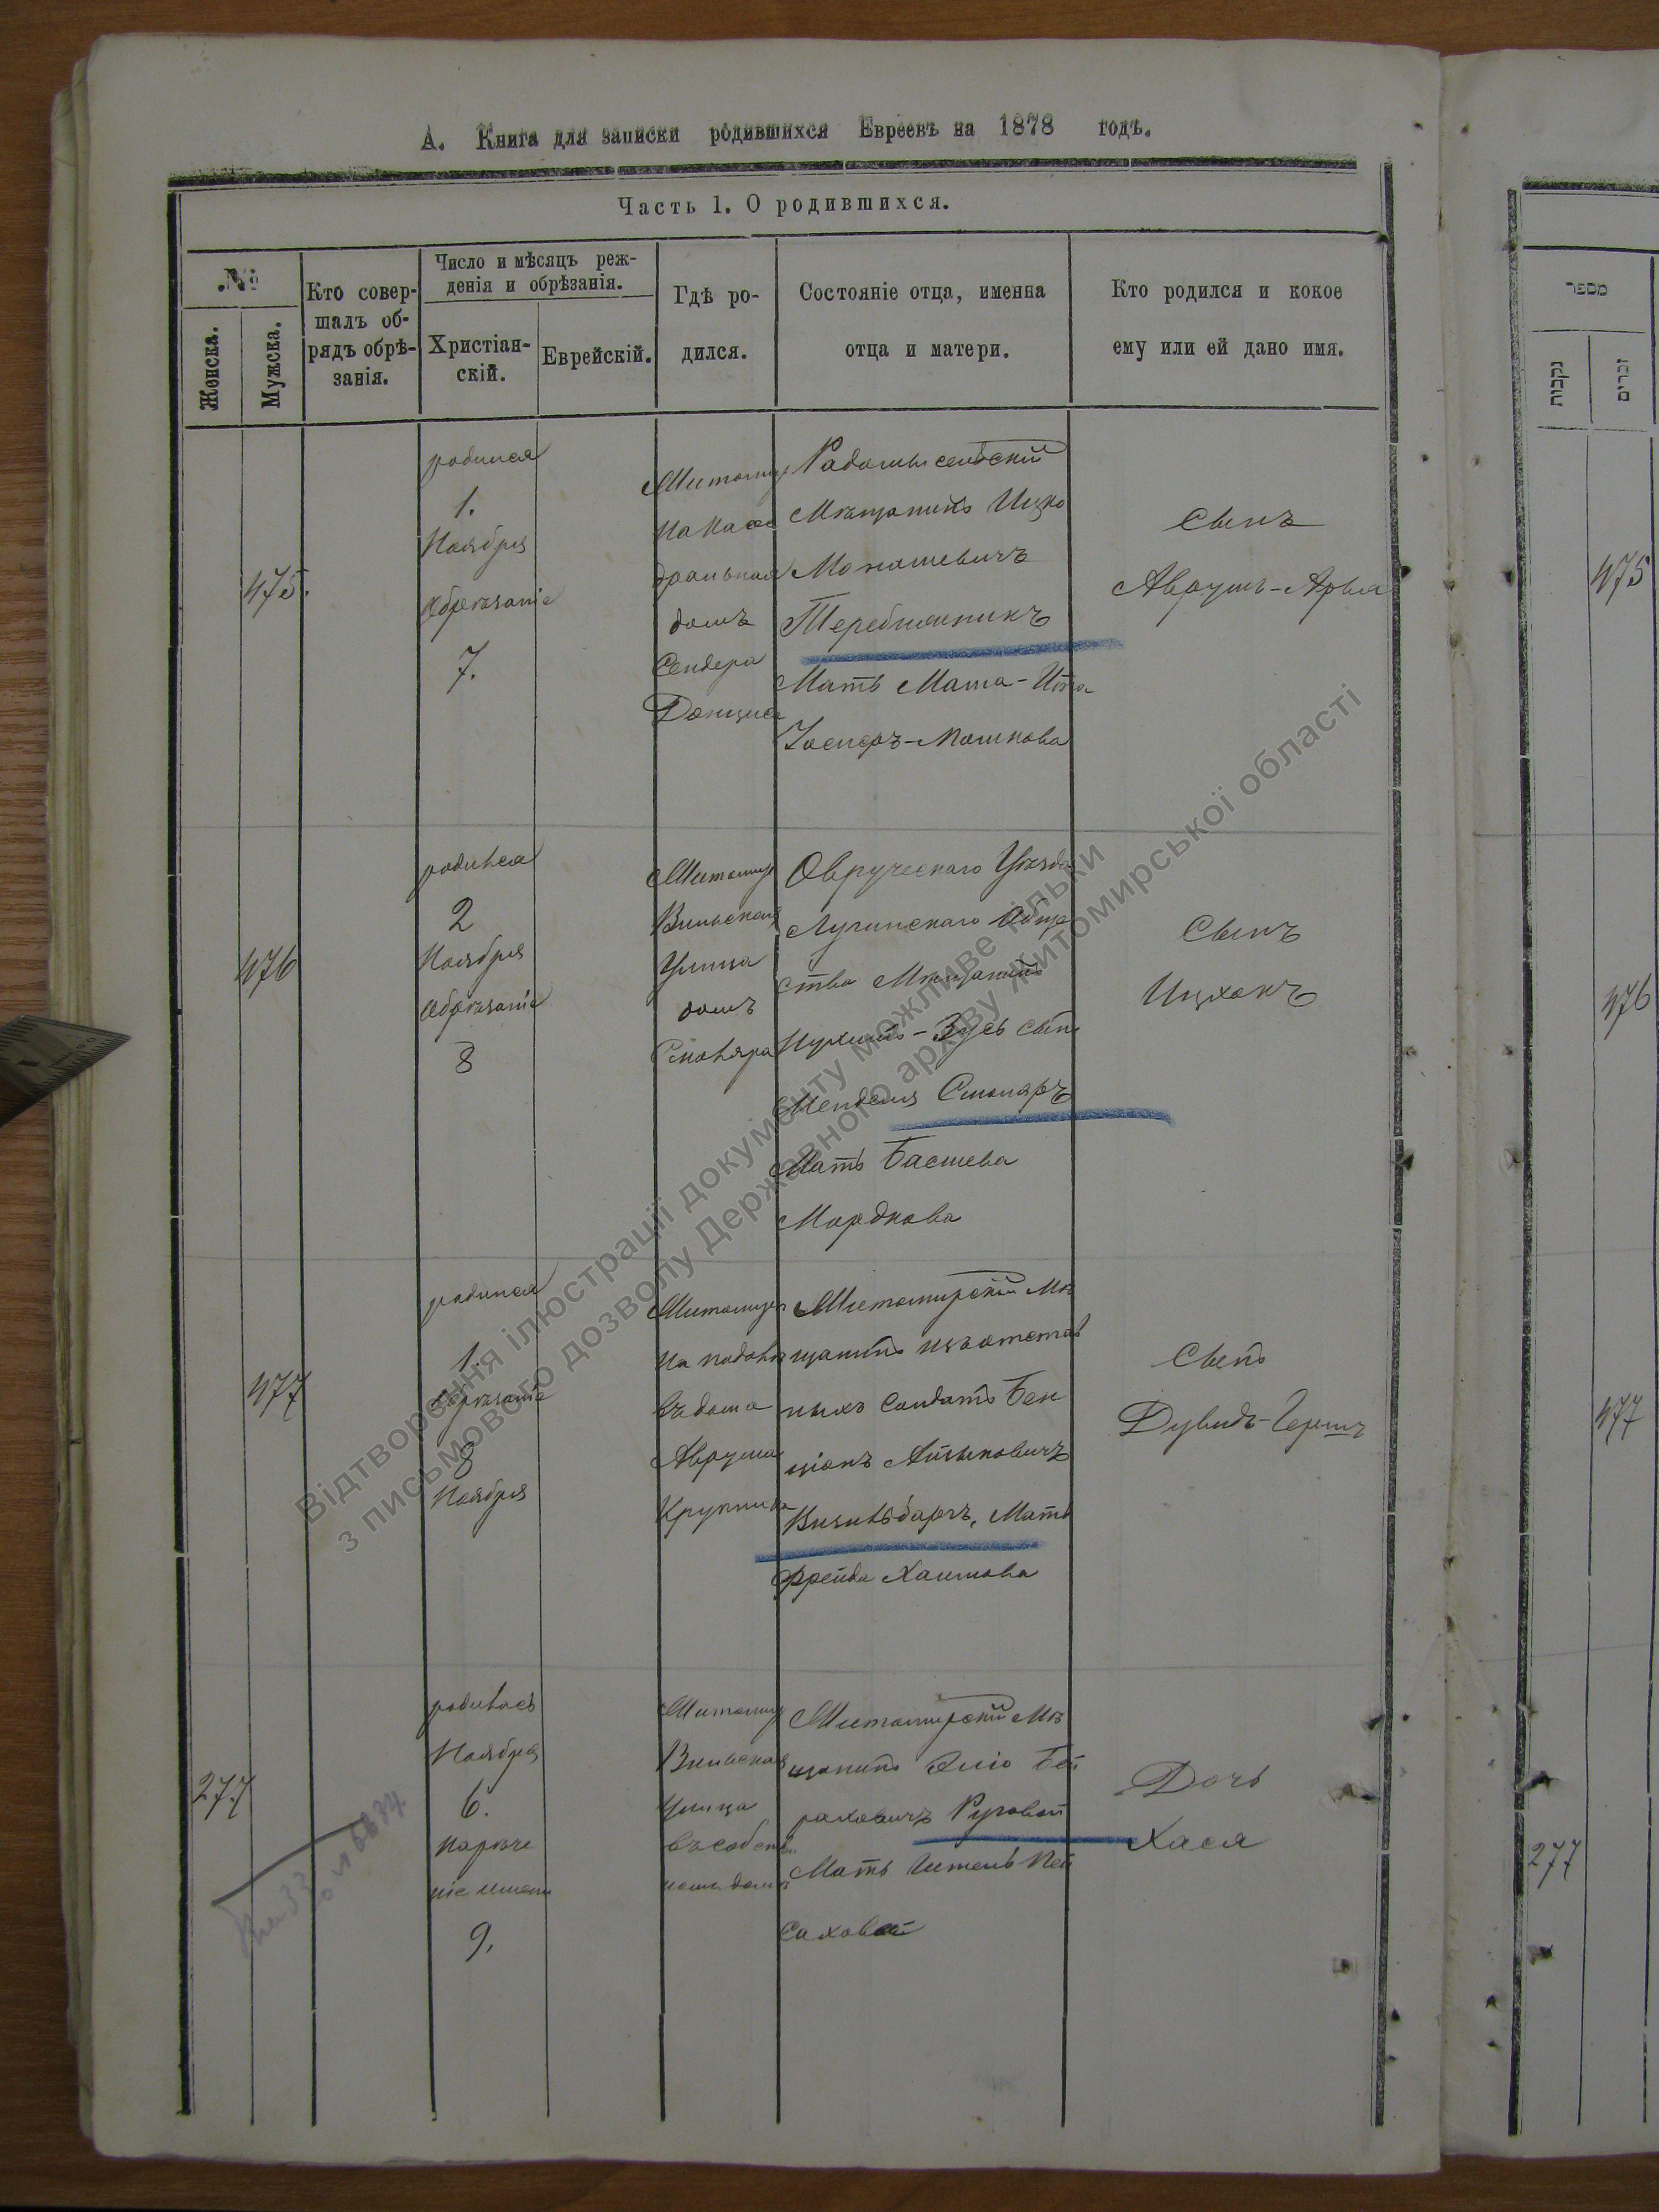 А. Книга для записки родившихся Евреевъ на 1878 годъ.
Часть 1. О родившихся.
№
Женска.
Мужска.
Кто совер-
шалъ об-
рядъ обрѣ-
занія.
Число и мѣсяцъ реж-
денія и обрѣзанія.
Христіан-
скій.
Еврейскій.
Гдѣ ро-
дился.
Состояніе отца, именна
отца и матери.
Кто родился и кокое
ему или ей дано имя.
מספר
נקבות
זכרים
475.
родился
1.
Ноября
Обрѣзаніе
7.
Житомир
домъ
Сендера
Радомысельскій
Мѣщанинъ Ицко
Мошкова
Мать Маша-Ита
Сынъ
Аврумъ-Арья
475
476
родился
2
Ноября
Обрѣзаніе
8
Житомир
Вильская
Улица
домъ
Смоляра
Овручскаго Уѣзда
Лугинскаго Обще
ства Мѣщанинъ
Нухимъ-Зусь сынъ
Менделя Смоляръ
Мать Басшева
Мордкова
Сынъ
Ицхокъ
476
477
родился
1.
обрѣзаніе
8
Ноября
Житомиръ
на подолѣ
въ дома
Аврума
Крупника
Житомирскій Мѣ
щанинъ изъ отстав
ныхъ Солдатъ Бен
ціонъ Айзыковичъ
Мать
Фрейда Хаимова
Сынъ
Дувидъ-Гершъ
477
277
родилась
Ноября
6.
нарѣче
ніе имени
9.
Житомир
Вильская
Улица
въ собствен
номъ домѣ
Житомирскій Мѣ
щанинъ Эліо Бей
раховичъ Руговой
Мать
саховой
Дочь
Хася
277
Відтворення ілюстрації документу можливе тільки
з письмового дозволу Державного архіву Житомирської області